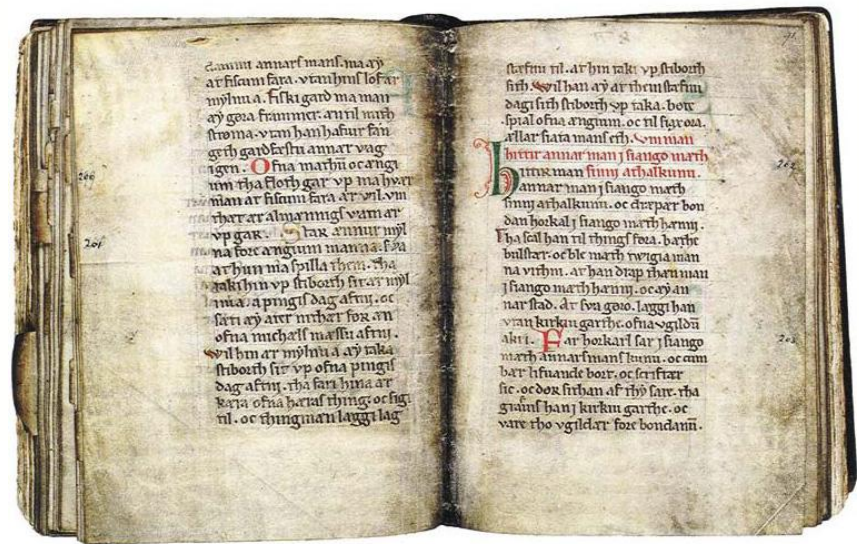 annars mans. ma ay
ar fiscum fara. vtan hins lof ær
mylnu a. Fiski gard ma man
æy gøra frammer. æn til mith
strøma. vtan han hafur fan
geth gardfæstu annær vagh
nigen. Ofna mæthū oc ængi
um tha floth gar vp ma hvær
man ær fiscum fara ær vil. vm
thæt ær almænnigs vatn ær
vp gar. Star annur myl
na fore ængium manna. sva
ær hun ma spilla them. tha
taki hin vp stiborth sit ær myl
nu a. a pingis dag aftni. oc
sæti æy ater nithær før æn
ofna michæls mæssu aftni.
Wil hin ær mylnu a æy taka
stiborth sit vp ofna pingis
dag aftni. tha fari hin a ær
kæra ofna hæras thing. oc sigi
til. oc thingmæn læggi lag
266
261
stæfnu til. ær hin taki vp stiborth
sith. Wil han æy ær them stæfnu
dagi sith stiborth vp taka. bøte
spial ofna ængium. oc til siax øra.
ællar siata mans eth. Vm man
hittir annar man i siango mæth
Hittir man sinni athalkunu.
annar man i siango mæth
sinni athalkunu. oc dræpær bon
dan horkal i siango mæth hænni.
Tha scal han til things føra. bæthe
bulstær. oc blē mæth twigia man
na vithni. ær han drap thæn man
i siango mæth hænni. oc æy an
nar stad. Ær sva gøro. læggi han
vtan kirkiu garthe. ofna vgildū
akri. Far horkarl sar i siango
mæth annars mans kunu. oc cum
bær lifuande bort. oc scriftær
sic. oc dør sithan af thy sare. tha
grauis han i kirkiu garthe. oc
vare tho vgildær fore bondanū.
262
263